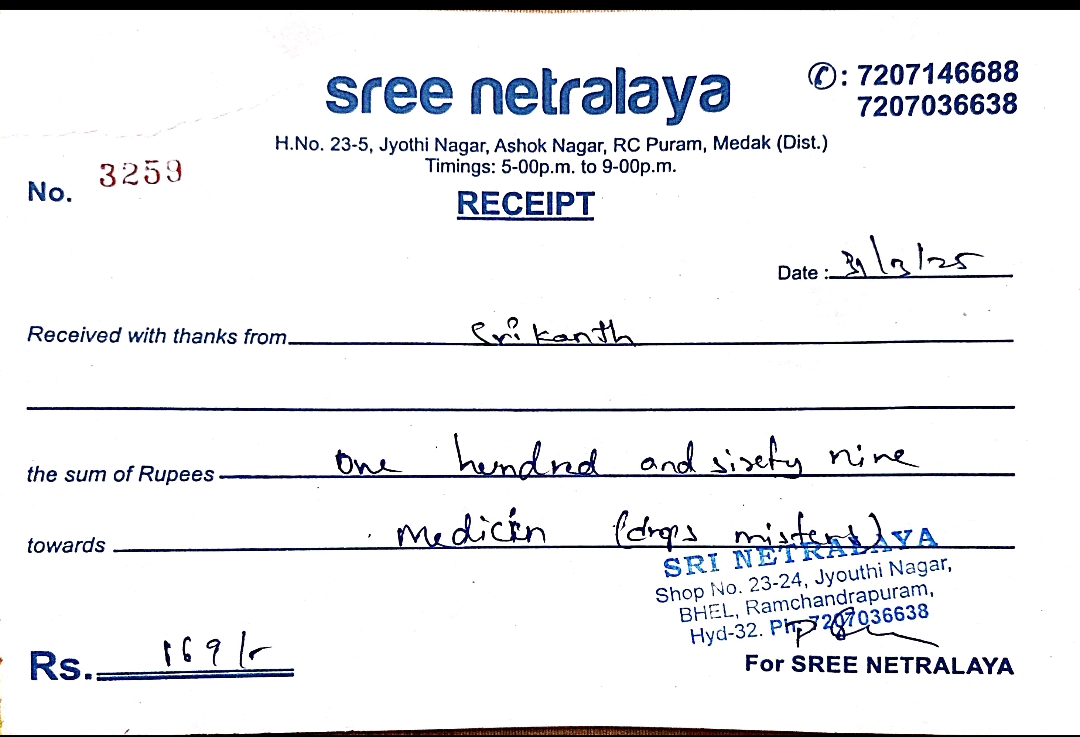 sree netralaya
✆: 7207146688
7207036638
H.No. 23-5, Jyothi Nagar, Ashok Nagar, RC Puram, Medak (Dist.)
Timings: 5-00p.m. to 9-00p.m.
No. 3259
RECEIPT
Date : 31/3/25
Received with thanks from Srikanth
the sum of Rupees One hundred and sixety nine
towards Medicin (drops
SRI NETRALAYA
Shop No. 23-24, Jyouthi Nagar,
BHEL, Ramchandrapuram,
Hyd-32. Ph: 7207036638
Rs. 169/-
For SREE NETRALAYA